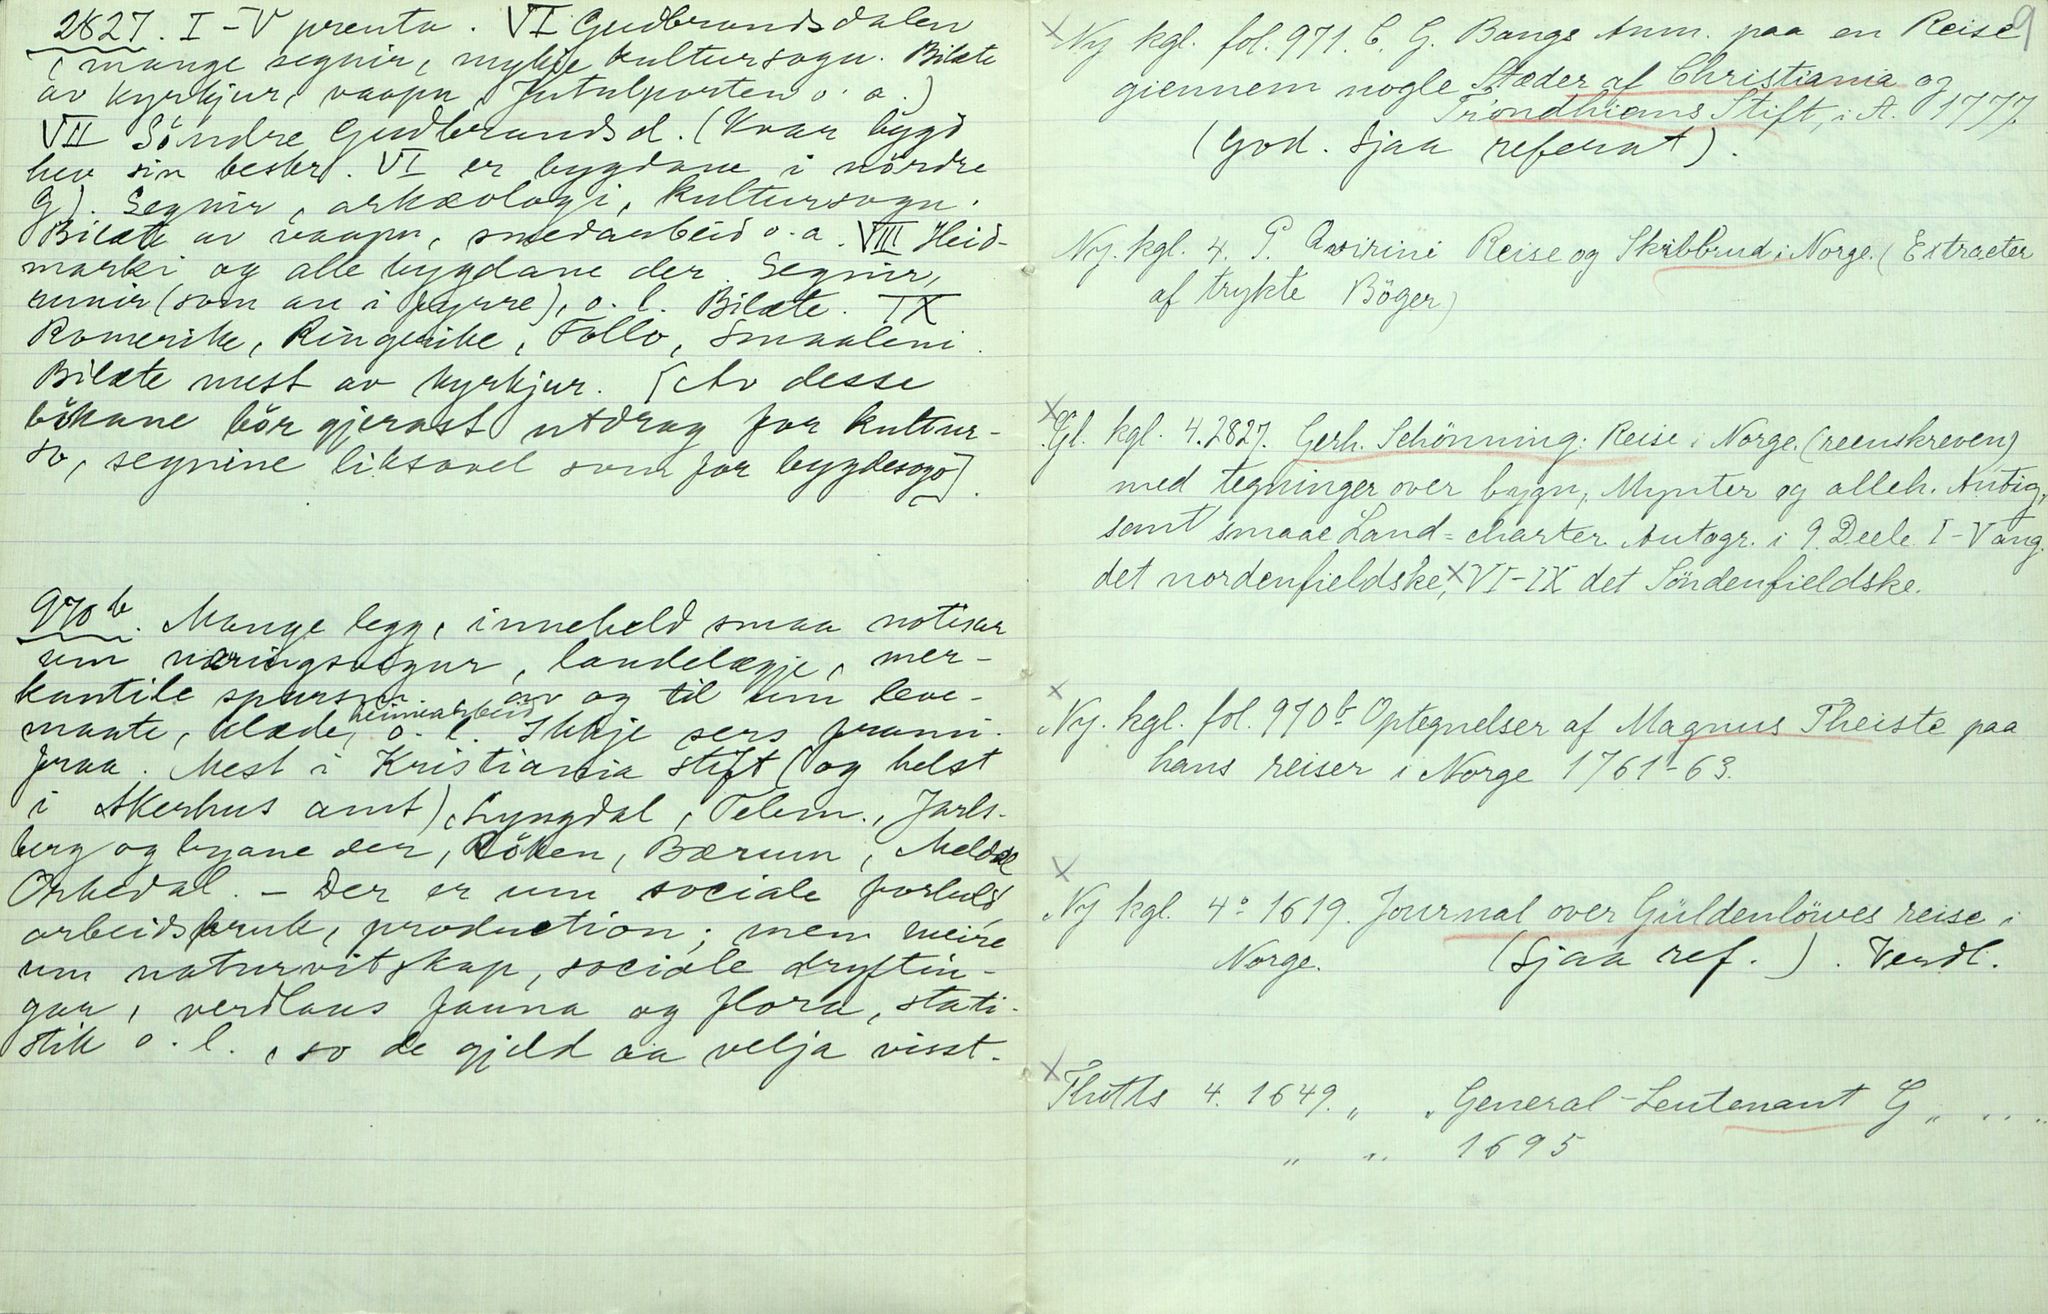 2827. I-V prenta. VI Gudbrandsdalen
(mange segnir, mykje kultursogu. Bilæte
av kyrkjur, vaapn, Jutulporten o. a.)
VII Söndre Gudbrandsd. (Kvar bygd
hev sin beskr. VI er bygdane i nördre
G). Segnir, arkæologi, kultursogu.
Bilæte av vaapn, smedarbeid o. a. VIII Heid-
marki og alle bygdane der. Segnir,
runir (som an i fyrre), o. l. Bilæte. IX
Romerike, Ringerike, Follo, Smaaleni.
Bilæte mest av kyrkjur. [Av desse
bökane bör gjerast utdrag for kultur-
so, segnine liksovel som for bygdesogo].
970 b. Mange legg, inneheld smaa notisar
um næringsvegur, landelægje, mer-
kantile spursm. av og til um leve-
maate, klæde, heimearbeid o. l. Ikkje sers frami-
fraa. Mest i Kristiania stift (og helst
i Akerhus amt), Lyngdal, Telem., Jarls-
berg og byane der, Röken, Bærum, Meldal
Orkedal. - Der er um sociale forhold,
arbeidsbruk, production; men meire
um naturvitskap, sociale dryftin-
gar, verdlaus fauna og flora, stati-
stik o. l., so de gjeld aa velja visst.
9
x Ny kgl. fol. 971. C. G. Bangs Anm. paa en Reise
giennem nogle Stæder af Christiania og
Trondhiems Stift, i A. 1777.
(God. Sjaa referat).
Ny. kgl. 4. P. Qvirini Reise og Skibbrud i Norge. (Extracter
af trykte Böger)
x Gl. kgl. 4. 2827. Gerh. Schönning: Reise i Norge. (reenskreven)
med tegninger over bygn, Mynter og alleh. Antiq.,
samt smaae Land=charter. Autogr. i 9 Deele I-V ang.
det nordenfieldske, x VI-IX det Söndenfieldske.
x Ny. kgl. fol. 970 b Optegnelser af Magnus Theiste paa
hans reiser i Norge 1761-63.
x Ny kgl. 4° 1619. Journal over Güldenlöwes reise i
Norge. (Sjaa ref.). Verdl.
x Thotts 4. 1649. „ „ General-Leutenant G „ „ „
„ „ 1695